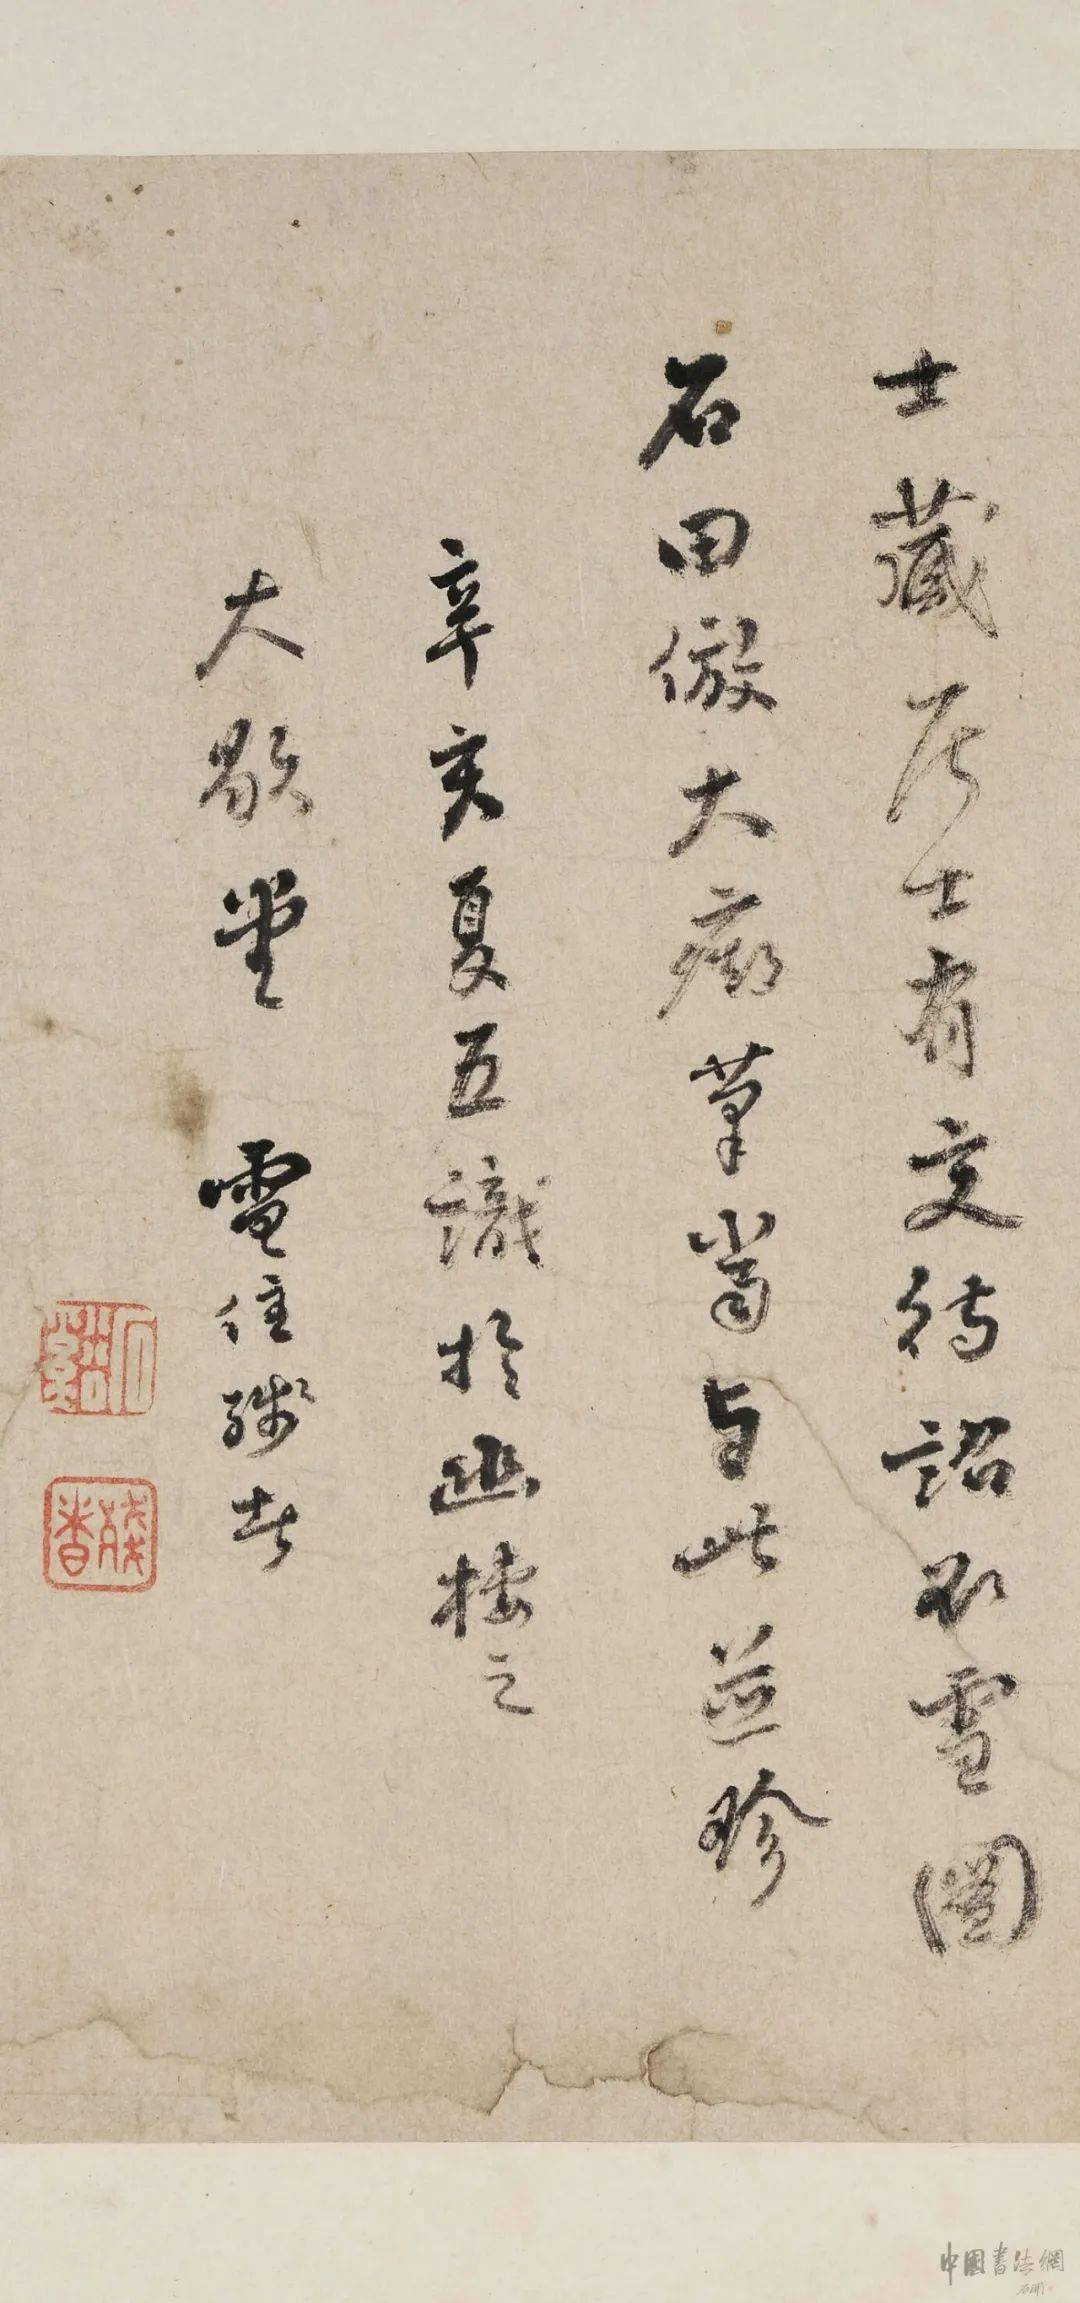 士藏居士有文待詔臥雪圖
石田倣大癡筆當与此並珍
辛亥夏五識於幽棲之
大歇堂 電住殘者
殘者
中國書法網